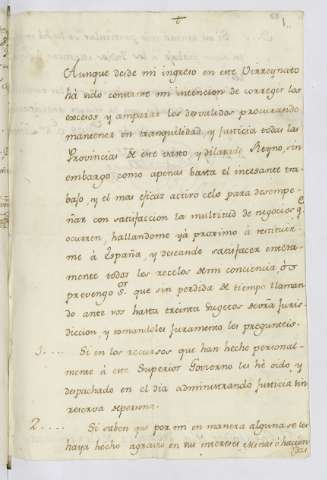 1.
Aunque desde mi ingreso en este Virreynato
ha sido constante mi intencion de corregir los
excesos, y amparar los desvalidos procurando
mantener en tranquilidad, y Justicia todas las
Provincias de este vasto y dilatado Reyno, sin
embargo como apenas basta el incesante tra-
bajo, y el mas eficaz activo celo para desempe-
ñar con satisfaccion la multitud de negocios q.
ocurren, hallandome yá proximo á restituir-
me á España, y deseando satisfacer entera-
mente todos los recelos de mi conciencia,
prevengo que sin perdida de tiempo llaman-
do ante vos hasta treinta Sugetos de esta Juris-
diccion, y tomandoles juramento les pregunteis.
1.... Si en los recursos que han hecho personal-
mente á este Superior Govierno les hé oido, y
despachado en el dia administrando Justicia sin
reserva de persona.
2.... Si saben que por mi en manera alguna se les
haya hecho agravio en sus intereses Minas ó hacien
das